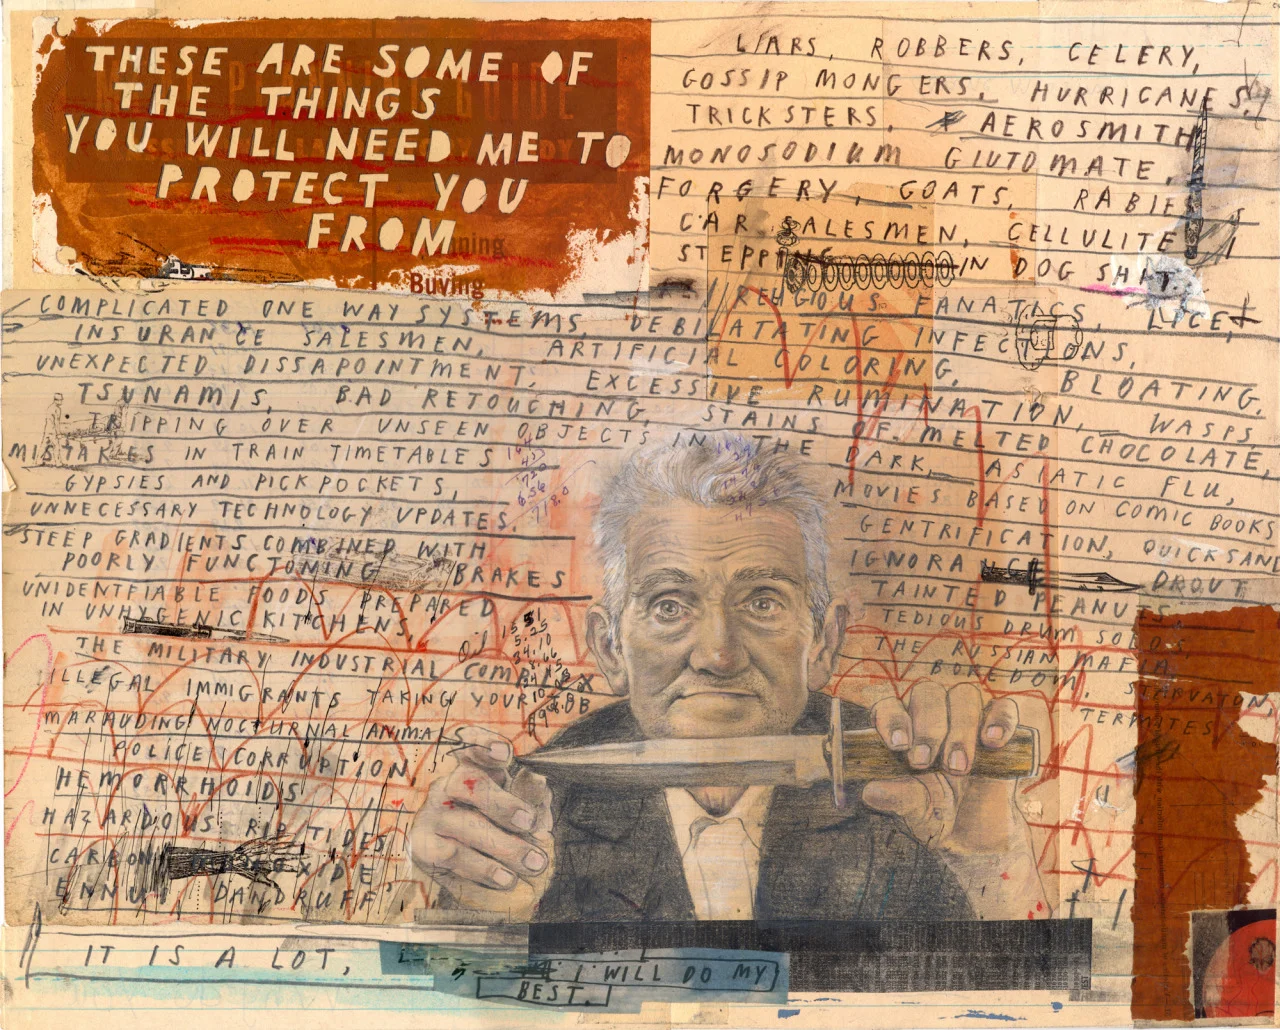 THESE ARE SOME OF
THE THINGS
YOU WILL NEED ME TO
PROTECT YOU
FROM
Buying
LIARS, ROBBERS, CELERY,
GOSSIP MONGERS, HURRICANES,
TRICKSTERS, AEROSMITH
MONOSODIUM GLUTOMATE,
FORGERY, GOATS, RABIES
CAR SALESMEN, CELLULITE
STEPPING IN DOG SHIT
RELIGIOUS FANATICS, LICE,
COMPLICATED ONE WAY SYSTEMS, DEBILATATING INFECTIONS,
INSURANCE SALESMEN, ARTIFICIAL COLORING, BLOATING,
UNEXPECTED DISSAPOINTMENT, EXCESSIVE RUMINATION, WASPS
TSUNAMIS, BAD RETOUCHING, STAINS OF MELTED CHOCOLATE,
TRIPPING OVER UNSEEN OBJECTS IN THE DARK, ASIATIC FLU,
MISTAKES IN TRAIN TIMETABLES
MOVIES BASED ON COMIC BOOKS
GYPSIES AND PICKPOCKETS,
GENTRIFICATION, QUICKSAND
UNNECESSARY TECHNOLOGY UPDATES,
IGNORANCE DROUT
STEEP GRADIENTS COMBINED WITH
POORLY FUNCTONING BRAKES
TAINTED PEANUTS
UNIDENTFIABLE FOODS PREPARED
IN UNHYGENIC KITCHENS,
TEDIOUS DRUM SOLOS,
THE RUSSIAN MAFIA
THE MILITARY INDUSTRIAL COMPLEX
BOREDOM, STARVATON,
ILLEGAL IMMIGRANTS TAKING YOUR JOB
TERMITES
MARAUDING NOCTURNAL ANIMALS
POLICE CORRUPTION,
HEMORRHOIDS
HAZARDOUS RIP TIDES
CARBON MONOXIDE
ENNUI, DANDRUFF,
IT IS A LOT,
I WILL DO MY
BEST.